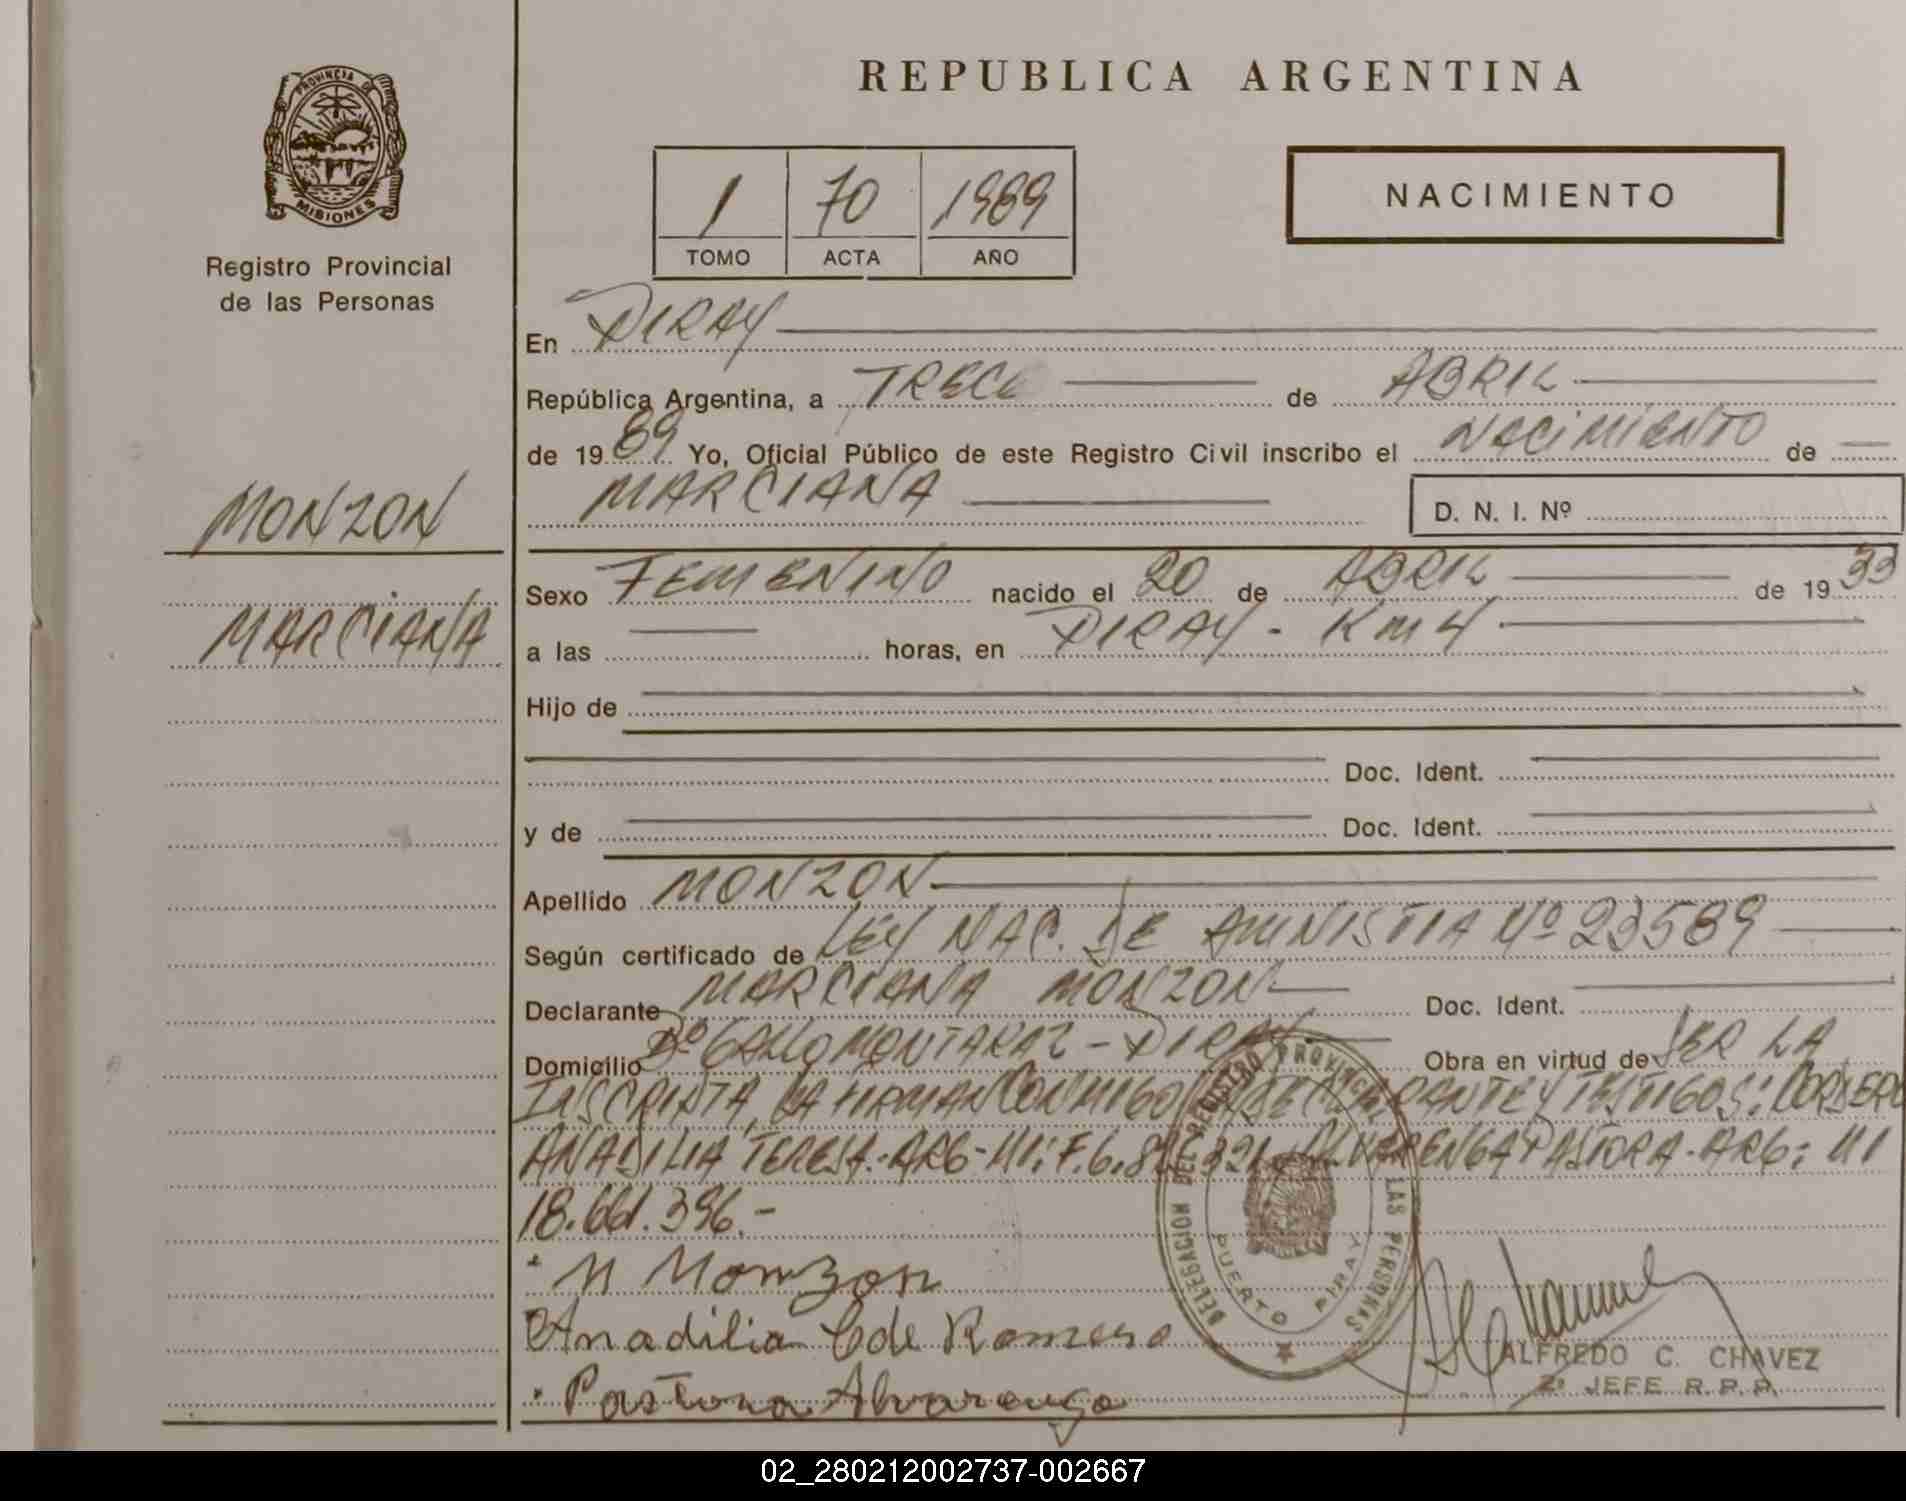 PROVINCIA DE
MISIONES
Registro Provincial
de las Personas
MONZON
MARCIANA
REPUBLICA ARGENTINA
1 70 1989
TOMO ACTA AÑO
NACIMIENTO
En PIRAY
República Argentina, a TRECE de ABRIL
de 19 89 Yo, Oficial Público de este Registro Civil inscribo el NACIMIENTO de
MARCIANA D. N. I. Nº
Sexo FEMENINO nacido el 20 de ABRIL de 19 33
a las horas, en PIRAY - Km 4
Hijo de
Doc. Ident.
y de Doc. Ident.
Apellido MONZON
Según certificado de LEY NAC. DE AMNISTIA Nº 23589
Declarante MARCIANA MONZON Doc. Ident.
Domicilio Bº GALLO MONTARAZ - PIRAY Obra en virtud de SER LA
INSCRIPTA, LA FIRMAN CONMIGO DECLARANTE Y TESTIGOS: CORDERO
ANADILIA TERESA.-ARG- MI: F.6. ALVARENGA PASTORA-ARG: MI
18.661.396.-
M Monzon
Anadilia C de Romero
Pastora Alvarenga
DELEGACION DEL REGISTRO PROVINCIAL DE LAS PERSONAS
PUERTO PIRAY
ALFREDO C. CHAVEZ
2º JEFE R. P. P.
02_280212002737-002667